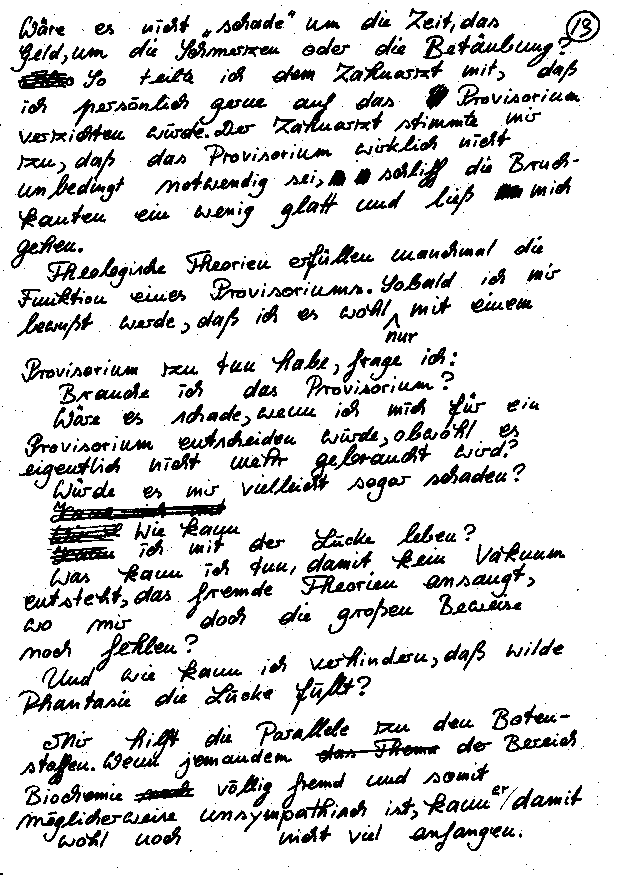 Wäre es nicht „schade" um die Zeit, das
13
Geld, um die Schmerzen oder die Betäubung?
So teilte ich dem Zahnarzt mit, daß
ich persönlich gerne auf das Provisorium
verzichten würde. Der Zahnarzt stimmte mir
zu, daß das Provisorium wirklich nicht
unbedingt notwendig sei, schliff die Bruch-
kanten ein wenig glatt und ließ mich
gehen.
Theologische Theorien erfüllen manchmal die
Funktion eines Provisoriums. Sobald ich mir
bewußt werde, daß ich es wohl mit einem
nur
Provisorium zu tun habe, frage ich:
Brauche ich das Provisorium?
Wäre es schade, wenn ich mich für ein
Provisorium entscheiden würde, obwohl es
eigentlich nicht mehr gebraucht wird?
Würde es mir vielleicht sogar schaden?
Wie kann
ich mit der Lücke leben?
Was kann ich tun, damit kein Vakuum
entsteht, das fremde Theorien ansaugt,
wo mir doch die großen Beweise
noch fehlen?
Und wie kann ich verhindern, daß wilde
Phantasie die Lücke füllt?
Mir hilft die Parallele zu den Boten-
stoffen. Wenn jemandem das Thema der Bereich
Biochemie völlig fremd und somit
möglicherweise unsympathisch ist, kann er damit
wohl noch nicht viel anfangen.